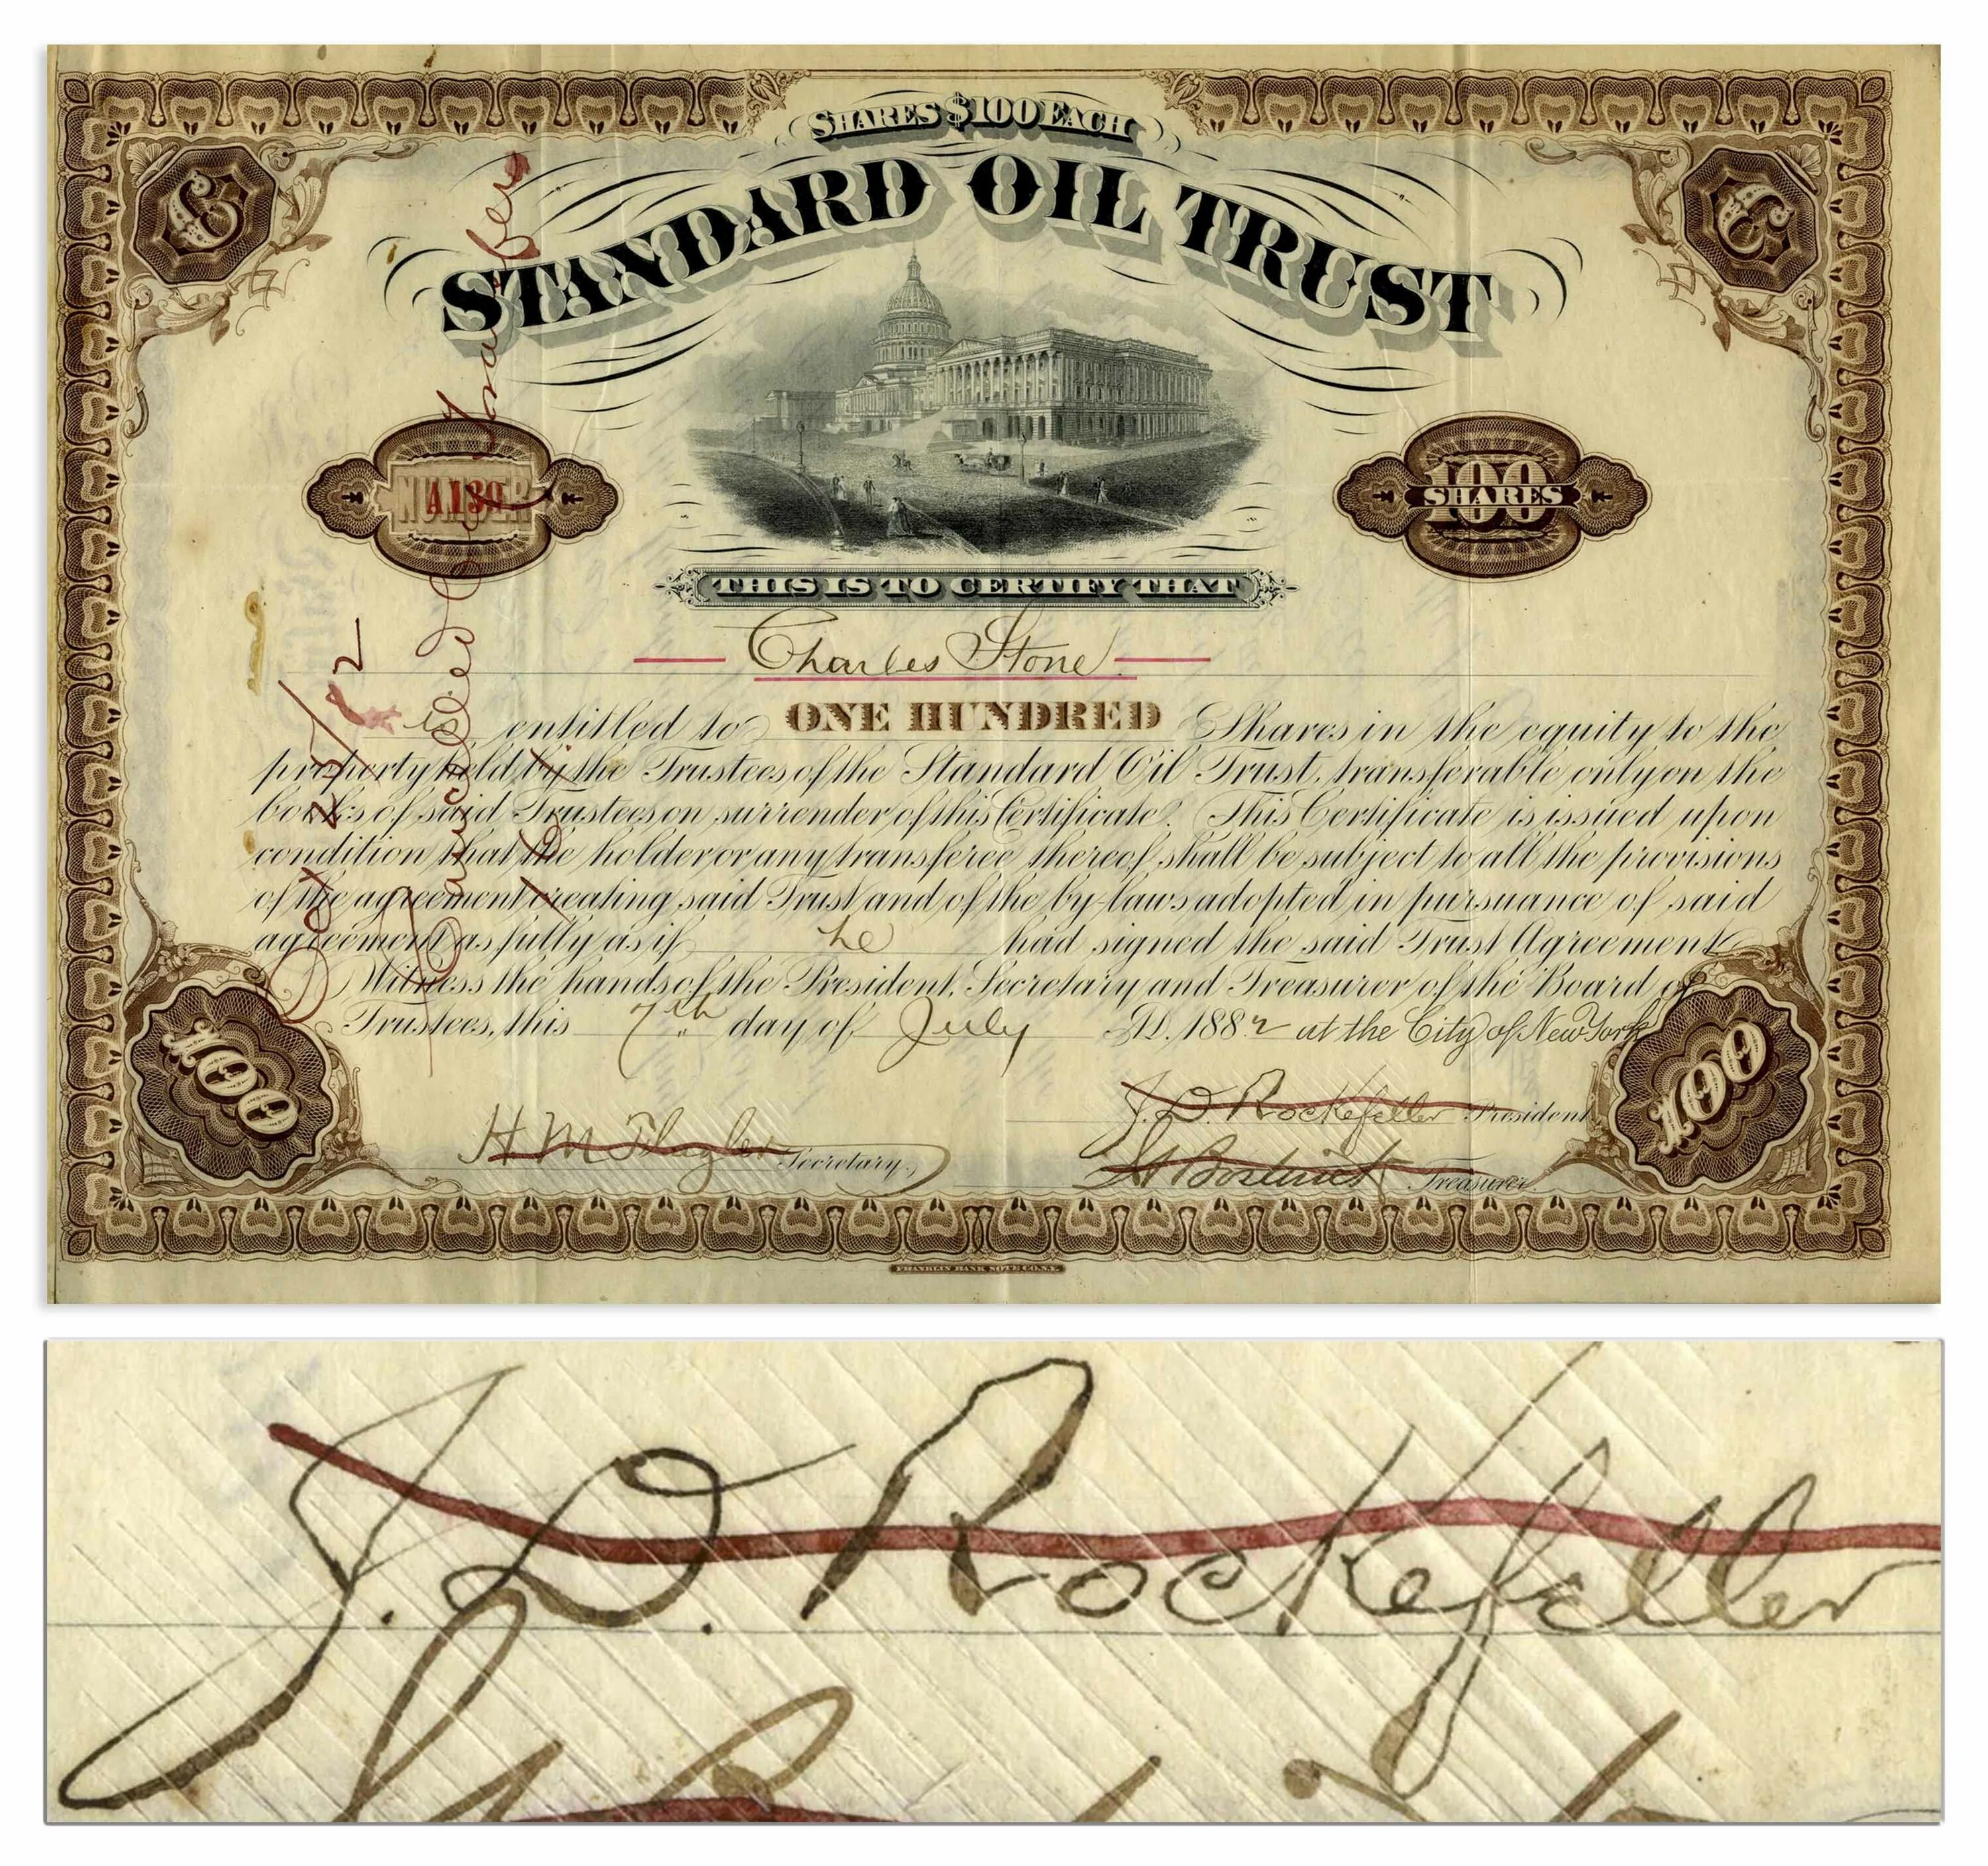 SHARES $100 EACH
STANDARD OIL TRUST
C
C
NUMBER
A139
100
SHARES
THIS IS TO CERTIFY THAT
Charles Stone
is entitled to ONE HUNDRED Shares in the equity to the
property held by the Trustees of the Standard Oil Trust, transferable only on the
books of said Trustees on surrender of this Certificate. This Certificate is issued upon
condition that the holder or any transferee thereof shall be subject to all the provisions
of the agreement creating said Trust and of the by-laws adopted in pursuance of said
agreement as fully as if he had signed the said Trust Agreement
Witness the hands of the President, Secretary and Treasurer of the Board of
Trustees, this 7th day of July A.D. 1882 at the City of New York
100
100
J. D. Rockefeller President
H M Flagler Secretary
Bostwick Treasurer
Cancelled by transfers
Oct 25/82
FRANKLIN BANK NOTE CO. N.Y.
J. D. Rockefeller